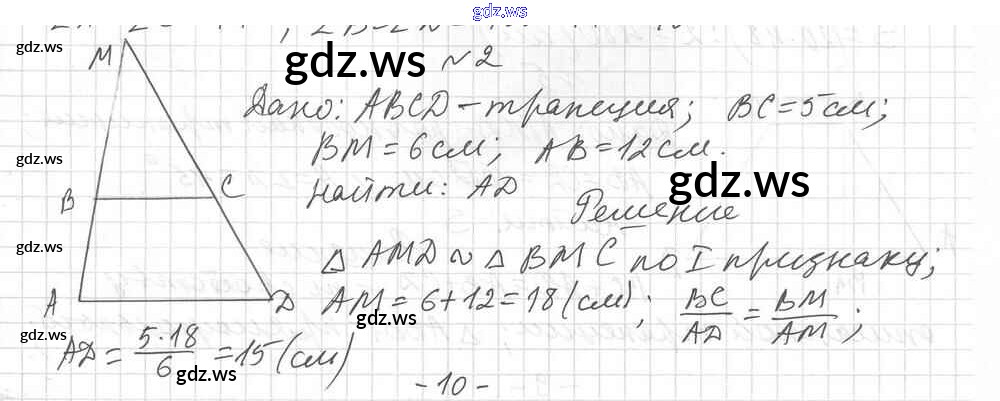 gdz.ws
gdz.ws
gdz.ws № 2
M
Дано: ABCD – трапеция; BC = 5 см;
gdz.ws
BM = 6 см; AB = 12 см.
gdz.ws
Найти: AD
B C
Решение
gdz.ws
△ AMD ~ △ BMC по I признаку;
A D AM = 6 + 12 = 18 (см); BC/AD = BM/AM;
gdz.ws
gdz.ws
AD = 5·18/6 = 15 (см)
gdz.ws
- 10 -